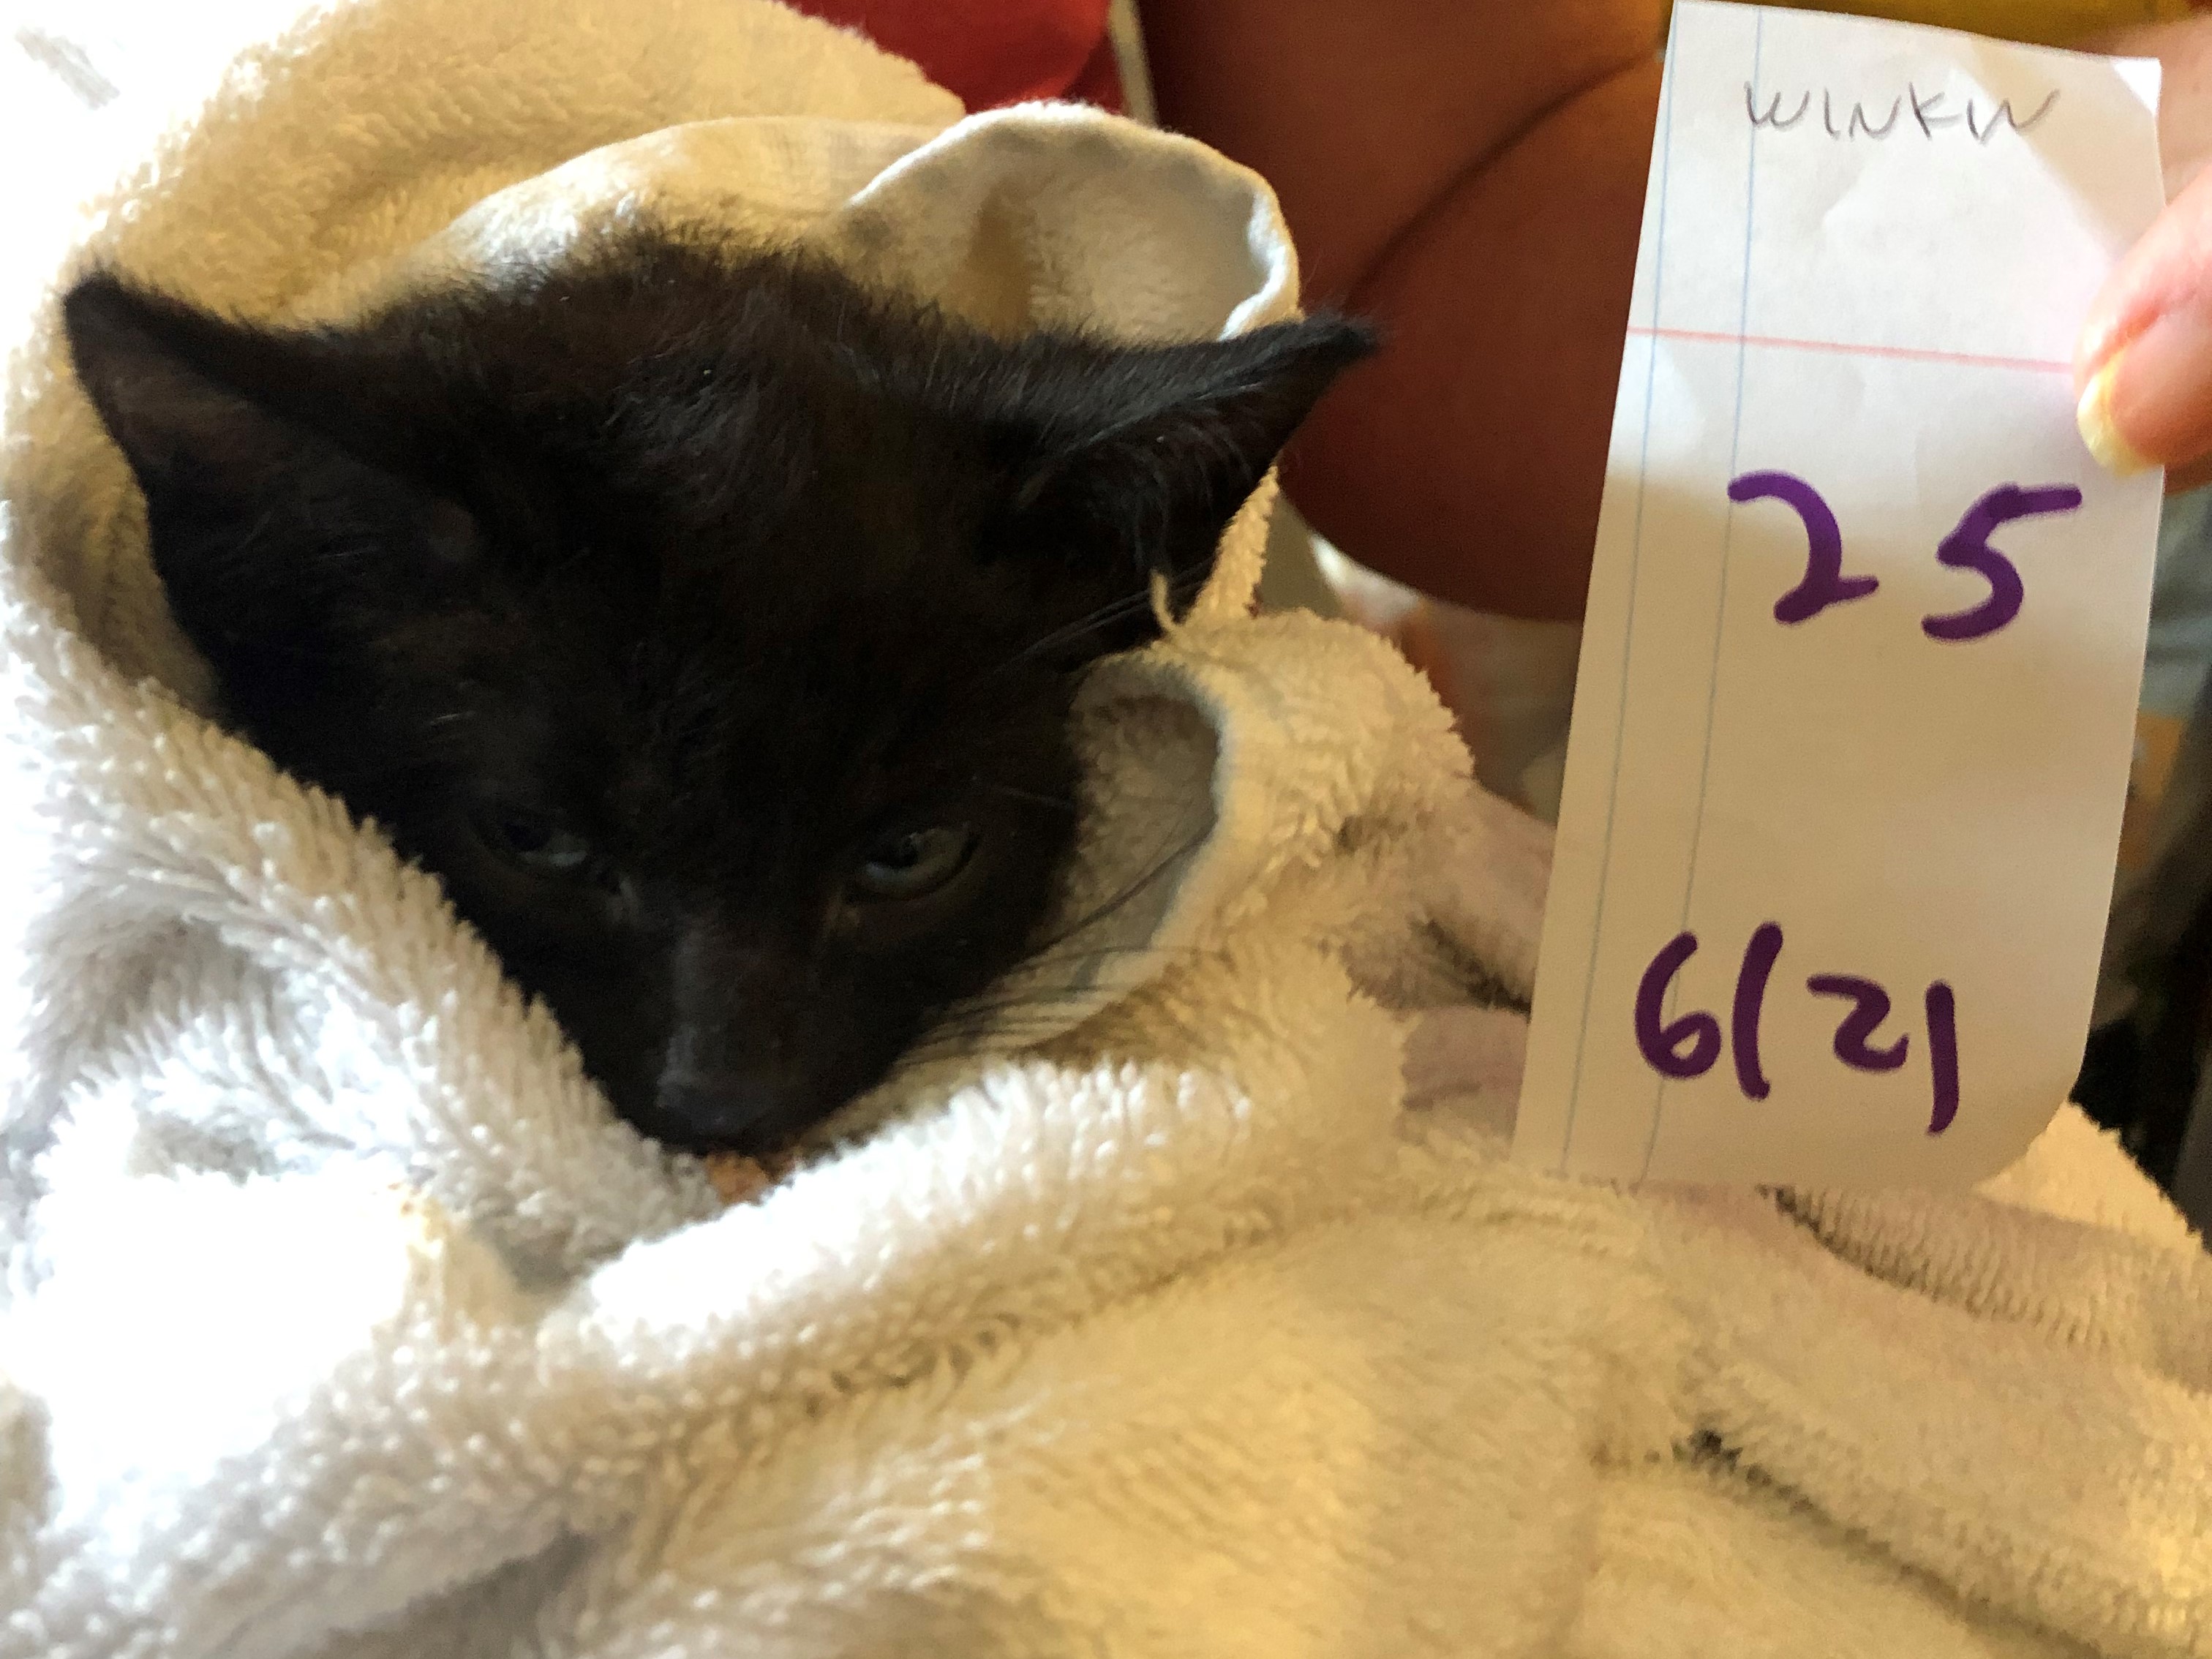 WINKIN
25
6/21